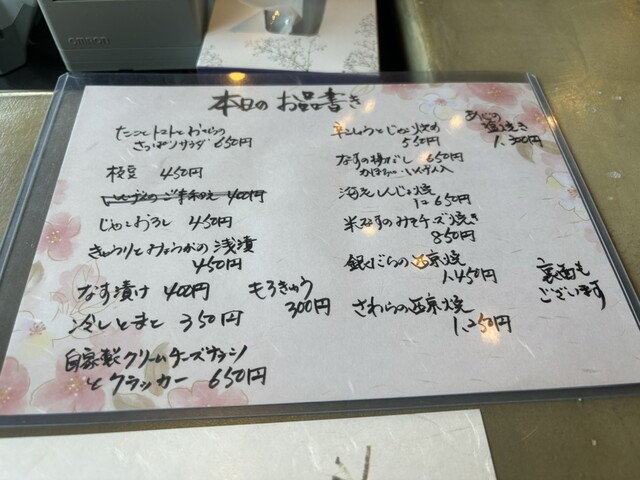 omron
本日のお品書き
たことトマトとわかめの
さっぱりサラダ 650円
枝豆 450円
いんげんのごま和え 400円
じゃことおろし 450円
きゅうりとみょうがの浅漬
450円
なす漬け 400円
もろきゅう
300円
冷しとまと 350円
自家製クリームチーズ
とクラッカー 650円
辛ししうとじゃこ炒め
550円
なすの揚げびたし 650円
かぼちゃ、いんげん入
海老しんじょ焼
650円
米なすのみそチーズ焼き
850円
銀だらの西京焼
1,450円
さわらの西京焼
1,250円
あじの
塩焼き
1,300円
裏面も
ございます